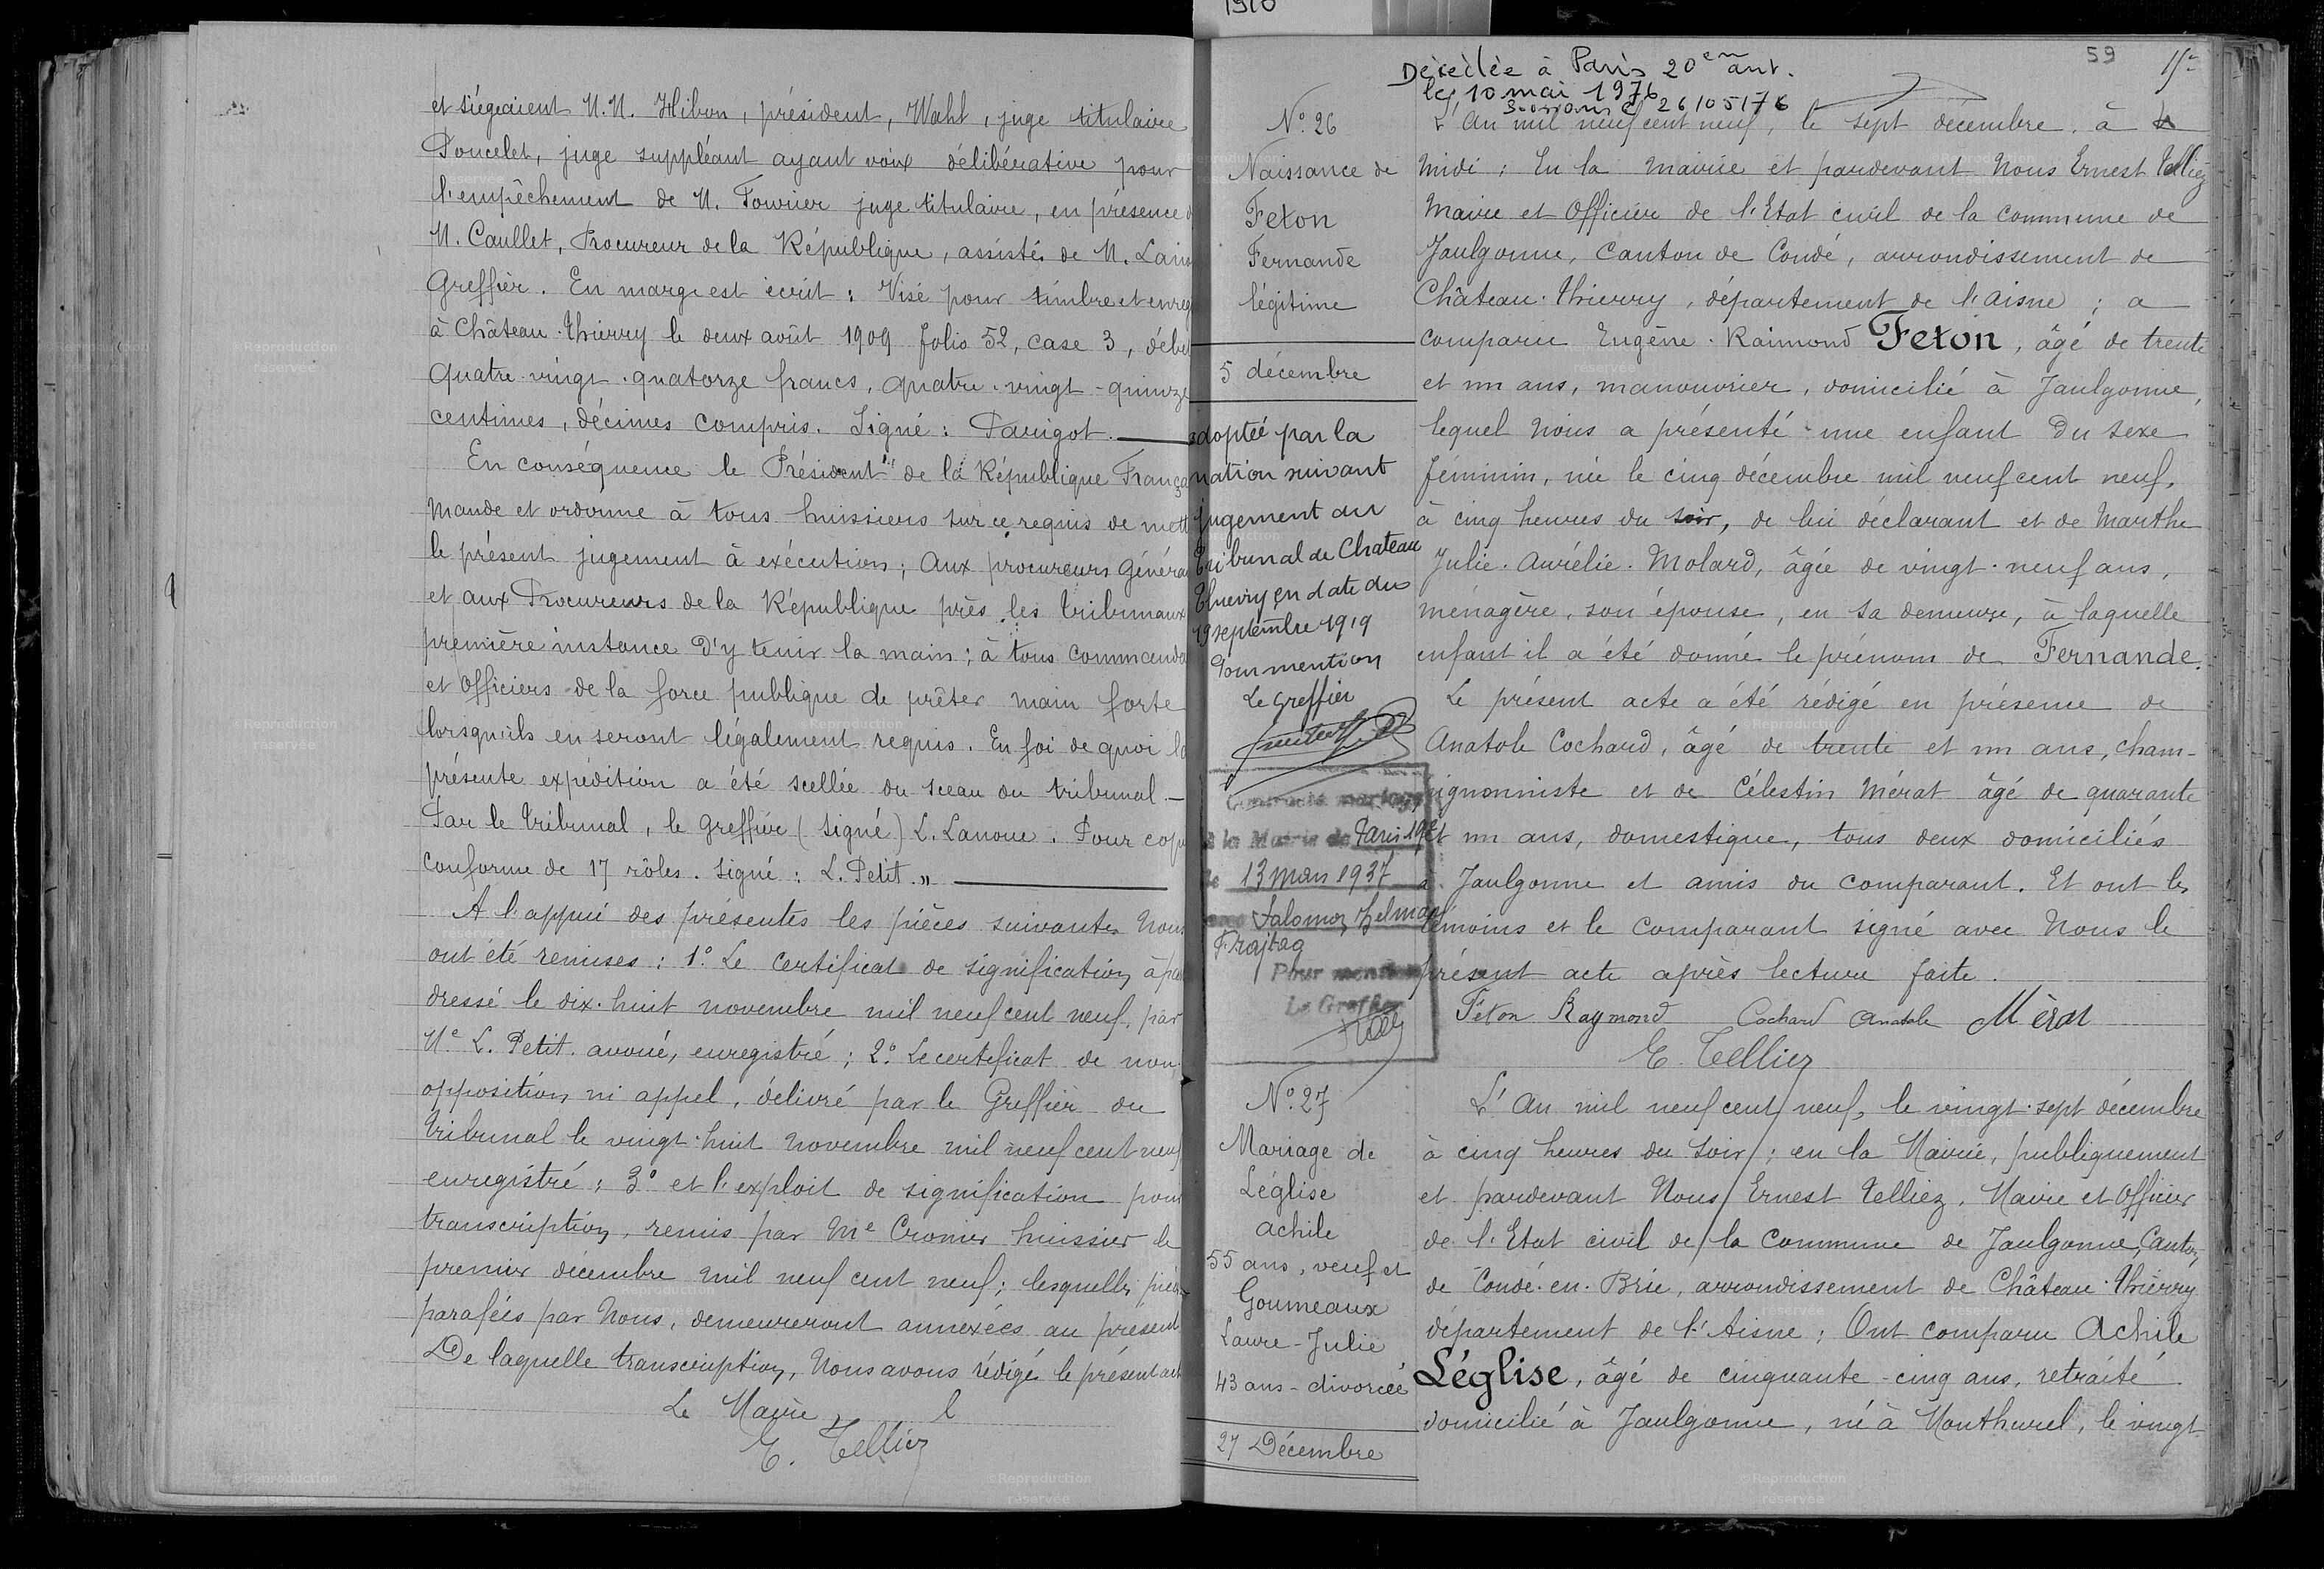 1910
et siégeaient M.M. Hibon, président, Wahl, juge titulaire
Poncelet, juge suppléant ayant voix délibérative pour
l'empêchement de M. Fournier juge titulaire, en présence
M. Caullet, Procureur de la République, assistés de M.
Greffier. En marge est écrit : Visé pour timbre et enreg
à Château-Thierry le deux août 1909 folio 52, case 3, débet
quatre-vingt-quatorze francs, quatre-vingt-quinze
centimes, décimes compris. Signé : Parigot.
En conséquence le Président de la République França
mande et ordonne à tous huissiers sur ce requis de mett
le présent jugement à exécution ; Aux procureurs généra
et aux Procureurs de la République près les tribunaux
première instance d'y tenir la main ; à tous commanda
et officiers de la force publique de prêter main forte
lorsqu'ils en seront légalement requis. En foi de quoi la
présente expédition a été scellée du sceau du tribunal.
Par le tribunal, le greffier (signé) L. Lanoue. Pour cop
conforme de 17 rôles. signé : L. Petit."
A l'appui des présentes les pièces suivantes nous
ont été remises : 1° Le certificat de signification à
dressé le dix-huit novembre mil neuf cent neuf, par
Me L. Petit avoué, enregistré ; 2° Le certificat de non
opposition ni appel, délivré par le Greffier du
tribunal le vingt-huit novembre mil neuf cent neuf
enregistré ; 3° et l'exploit de signification pour
transcription, remis par Me Cronier huissier le
premier décembre mil neuf cent neuf ; lesquelles pièc
parafées par Nous, demeureront annexées au présent
De laquelle transcription, Nous avons rédigé le présent act
Le Maire,
E. Telliez
59
Décédée à Paris 20em arrt.
le 10 mai 1976
26/05/76
N° 26
Naissance de
Feton
Fernande
légitime
5 décembre
adoptée par la
nation suivant
jugement du
tribunal de Chateau
Thierry en date du
19 septembre 1919
Pour mention
Le Greffier
Contracté mariage
à la Mairie de Paris 19e
le 13 mars 1937
avec Salomon Zelman
Frajtag
Pour mention
Le Greffier
L'An mil neuf cent neuf, le sept décembre, à
midi ; En la mairie et pardevant Nous Ernest Telliez
Maire et Officier de l'Etat civil de la commune de
Jaulgonne, Canton de Condé, arrondissement de
Château-Thierry, département de l'Aisne ; a
comparu Eugène-Raimond Feton, âgé de trente
et un ans, manouvrier, domicilié à Jaulgonne,
lequel Nous a présenté une enfant du sexe
féminin, née le cinq décembre mil neuf cent neuf,
à cinq heures du soir, de lui déclarant et de Marthe
Julie-Aurélie-Molard, âgée de vingt-neuf ans,
ménagère, son épouse, en sa demeure, à laquelle
enfant il a été donné le prénom de Fernande.
Le présent acte a été rédigé en présence de
Anatole Cochard, âgé de trente et un ans, cham-
pignonniste et de Célestin Mérat âgé de quarante
et un ans, domestique, tous deux domiciliés
à Jaulgonne et amis du comparant. Et ont les
témoins et le comparant signé avec Nous le
présent acte après lecture faite.
Féton Raymond Cochard Anatole Mérat
E. Telliez
N° 27
Mariage de
Léglise
Achile
55 ans, veuf et
Goumeaux
Laure-Julie
43 ans - divorcée
27 Décembre
L'An mil neuf cent neuf, le vingt-sept décembre
à cinq heures du soir ; en la Mairie, publiquement
et pardevant Nous Ernest Telliez, Maire et Officier
de l'Etat civil de la Commune de Jaulgonne, Canton
de Condé-en-Brie, arrondissement de Château-Thierry
département de l'Aisne : Ont comparu Achile
Léglise, âgé de cinquante-cinq ans, retraité
domicilié à Jaulgonne, né à Monthurel, le vingt-